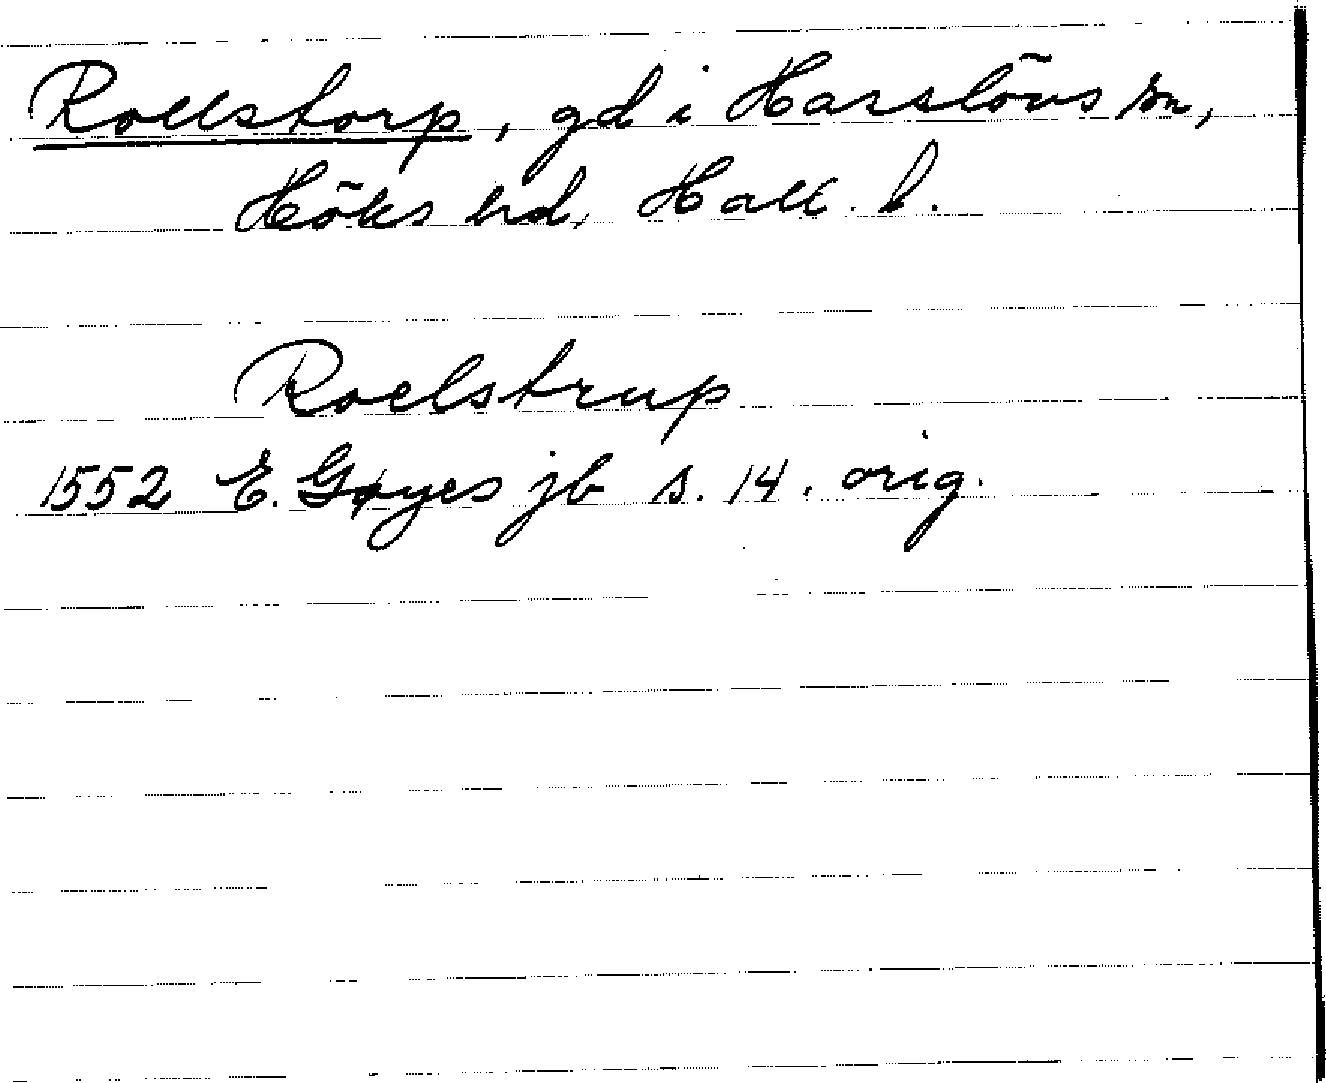 Rollstorp, gd i Hasslövs sn,
Höks hd, Hall. l.
Roelstrup
1552 E. Gøyes jb s. 14. orig.